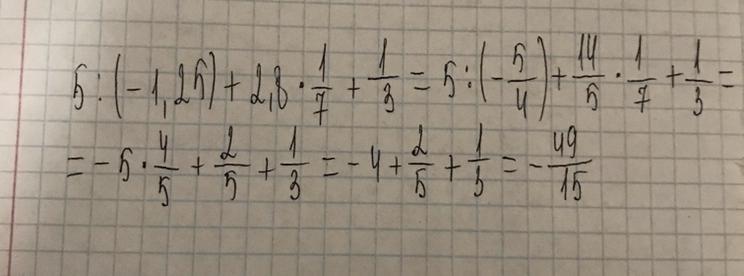 5 : (-1,25) + 2,8 · 1/7 + 1/3 = 5 : (-5/4) + 14/5 · 1/7 + 1/3 =
= -5 · 4/5 + 2/5 + 1/3 = -4 + 2/5 + 1/3 = -49/15